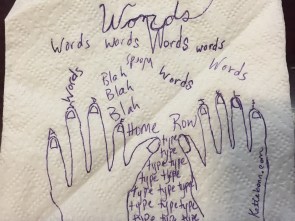 Words
Words Words Words words
Words Blah Words Words
Blah
Blah
Home Row
type
type type
type type type
type type type
type type type
type type type